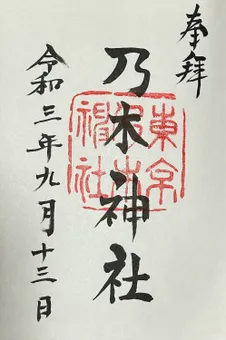 奉拝
乃木神社
東京乃木神社
令和三年九月十三日